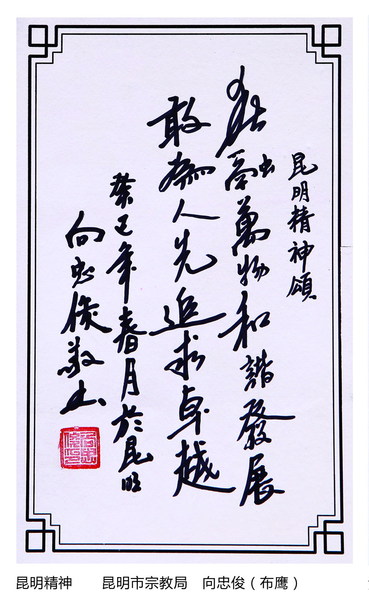 昆明精神頌
春融萬物和諧發展
敢為人先追求卓越
癸巳年春月於昆明
向忠俊敬书
昆明精神 昆明市宗教局 向忠俊（布鹰）